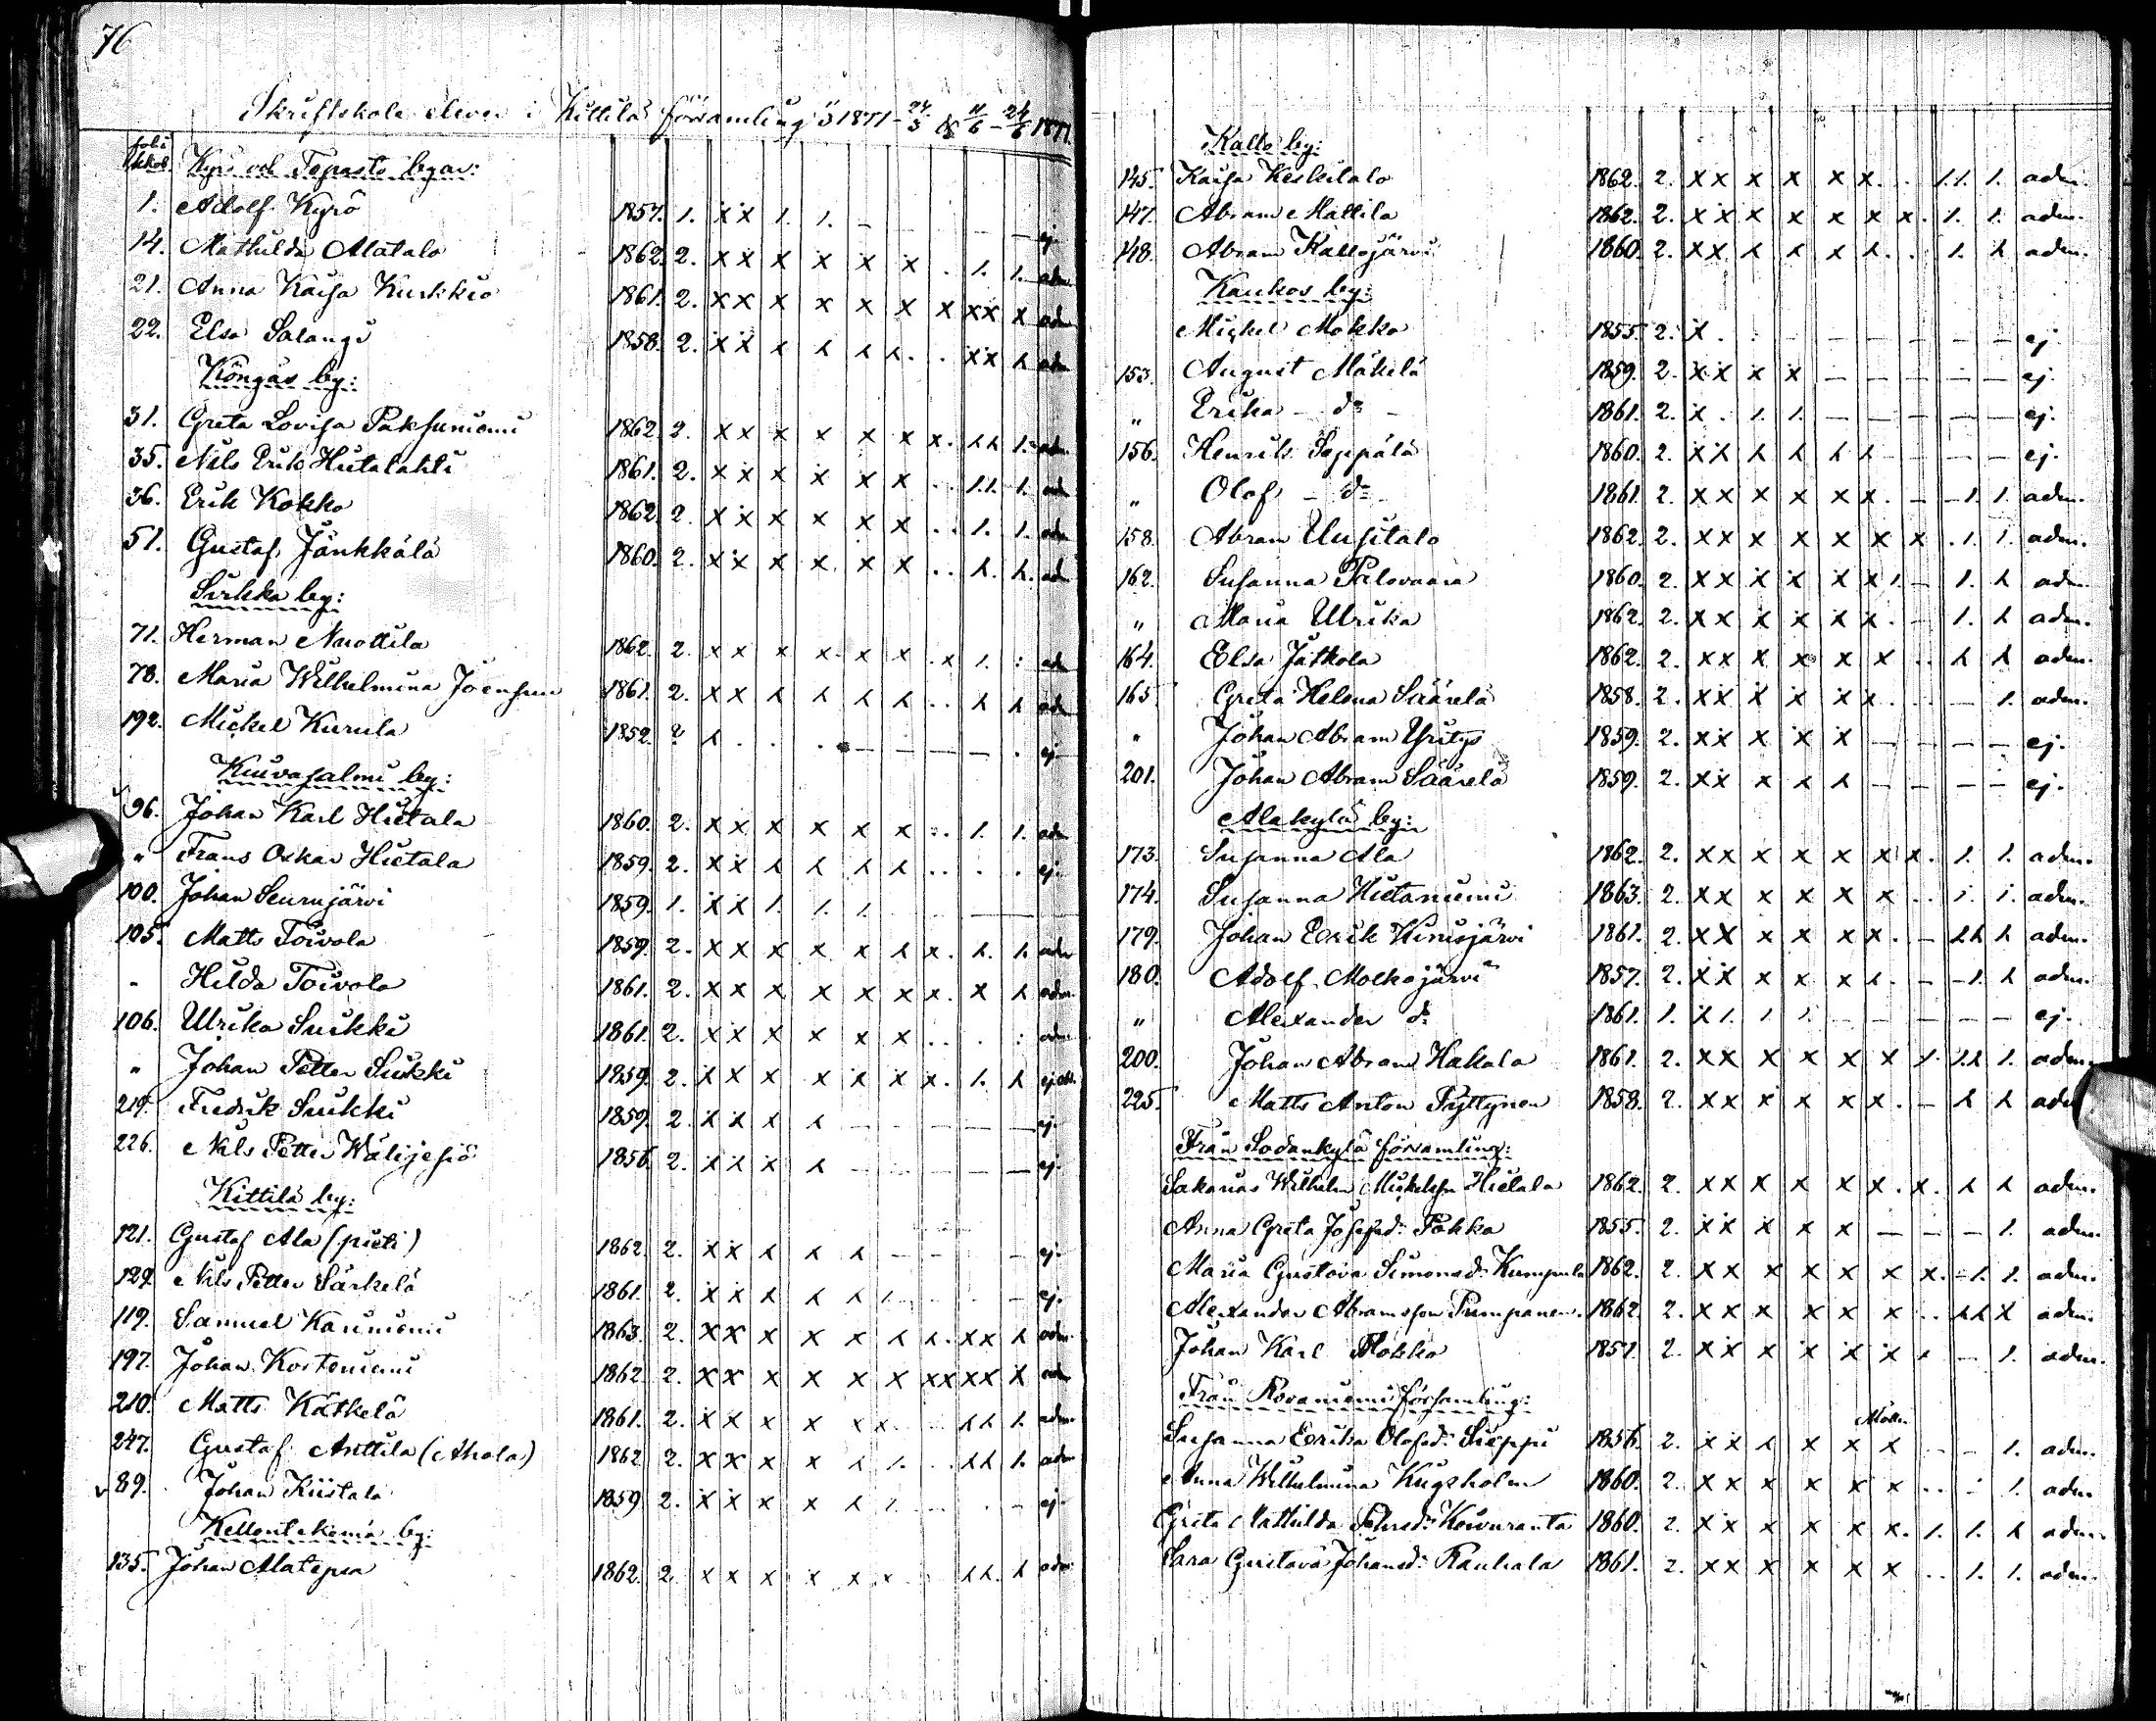 76
Skriftskole elever i Kittilä församling 1877
Kyrö och Tepasto byar:
1. Adolf Kyrö 1857. 1. x x 1. 1. — — — ej.
14. Mathilda Alatalo 1862. 2. x x x x x x . 1. 1. adm.
21. Anna Kaisa Kurkkio 1861. 2. x x x x x x x x x x adm
22. Elsa Salangi 1858. 2. x x x x x x . . x x x adm
Köngäs by:
31. Greta Lovisa Paksuniemi 1862. 2. x x x x x x x. x x 1. adm
35. Nils Erik Hietalahti 1861. 2. x x x x x x . . 1.1. 1. adm
36. Erik Kokko 1862. 2. x x x x x x . . 1. 1. adm
51. Gustaf Jänkkälä 1860. 2. x x x x x x . . x. x. adm
Sirkka by:
71. Herman Nuottila 1862. 2. x x x x x x . x 1. : adm
78. Maria Wilhelmina Joensuu 1861. 2. x x x x x x . . x x adm
192. Mickel Kurula 1852. 2 x . . . — — — — . ej.
96. Johan Karl Hietala 1860. 2. x x x x x x . . 1. 1. adm
" Frans Oskar Hietala 1859. 2. x x x x x x . . . . ej.
100. Johan Seurujärvi 1859. 1. x x 1. 1. 1. — — —
105. Matts Toivola 1859. 2. x x x x x x x. x. 1. adm
- Hilda Toivola 1861. 2. x x x x x x x. x x adm.
106. Ulrika Suikki 1861. 2. x x x x x x . . . : adm.
" Johan Petter Suikki 1859. 2. x x x x x x x. 1. x
219. Fredrik Suikki 1859. 2. x x x x — — — — — ej.
226. Nils Petter 1856. 2. x x x x — — — — — ej.
Kittilä by:
121. Gustaf Ala (pieti) 1862. 2. x x x x x — — — — ej.
129. Nils Petter Särkelä 1861. 2. x x x x x 1. — ej.
119. Samuel Kauniemi 1863. 2. x x x x x x x. x x x adm.
197. Johan Korteniemi 1862. 2. x x x x x x x x x x x adm
210. Matts Kätkelä 1861. 2. x x x x x x . . x x 1. adm.
247. Gustaf Anttila (Ahola) 1862 2. x x x x x 1. . . x x 1. adm
89. Johan Kiistala 1859 2. x x x x x 1. — . — ej.
135. Johan Alatepsa 1862. 2 x x x x x x . x x. x adm
Kallo by:
145. Kaisa Keskitalo 1862. 2. x x x x x x . . 1.1. 1. adm.
147. Abram Mattila 1862. 2. x x x x x x x. 1. 1. adm.
148. Abram Kallojärvi 1860. 2. x x x x x x . . 1. x adm.
Kaukos by:
Mickel Mokko 1855. 2. x . . — — — — — — ej.
153. August Mäkelä 1859. 2. x x x x — — — — — ej.
" Erika — do — 1861. 2. x . 1. 1. — — — — — ej.
156. Henrik Seppälä 1860. 2. x x x x x x — — — — ej.
" Olof — do — 1861. 2. x x x x x x . — — 1. 1. adm.
158. Abram Uusitalo 1862. 2. x x x x x x x . 1. 1. adm.
162. Susanna Palovaara 1860. 2. x x x x x x 1. — 1. x adm.
" Maria Ulrika 1862. 2. x x x x x x . — 1. x adm.
164. Elsa Jatkola 1862. 2. x x x x x x . . x x adm.
165 Greta Helena Säärelä 1858. 2. x x x x x x . . — 1. adm.
" Johan Abram Yritys 1859. 2. x x x x x — — — — ej.
201. Johan Abram Säärelä 1859. 2. x x x x x — — — — ej.
Alakylä by:
173. Susanna Ala 1862. 2. x x x x x x x. 1. 1. adm.
174. Susanna Hietaniemi 1863. 2. x x x x x x . . 1. 1. adm.
179. Johan Erik Kinisjärvi 1861. 2. x x x x x x . — x x x adm.
180. Adolf Molkojärvi 1857. 2. x x x x x x . — — 1. x adm.
" Alexander do 1861. 1. x 1. 1 1. — — — — — ej.
200. Johan Abram Hakala 1861. 2. x x x x x x 1. 1.x 1. adm.
225. Matts Anton Pyttynen 1858. 2. x x x x x x . — x x adm
Från Sodankylä församling:
Sakarias Wilhelm Mickelsson Hietala 1862. 2. x x x x x x . x. x x adm.
Anna Greta Josefsd: Pokka 1855. 2. x x x x x — — — 1. adm.
Maria Gustava Simonsd: Kumpula 1862. 2. x x x x x x x. — 1. 1. adm.
Alexander Abramsson Pumpanen. 1862. 2. x x x x x x . . x x x adm.
Johan Karl Mokko 1857. 2. x x x x x x . — 1. adm.
Från Rovaniemi församling:
Susanna Erika Olofsd: Sieppi 1856. 2. x x x x x x — — 1. adm.
Anna Wilhelmina 1860. 2. x x x x x x . . — 1. adm.
Greta Mathilda Koivuranta 1860. 2. x x x x x x. 1. 1. x adm.
Sara Gustava Johansd: Rauhala 1861. 2. x x x x x x . . 1. 1. adm.